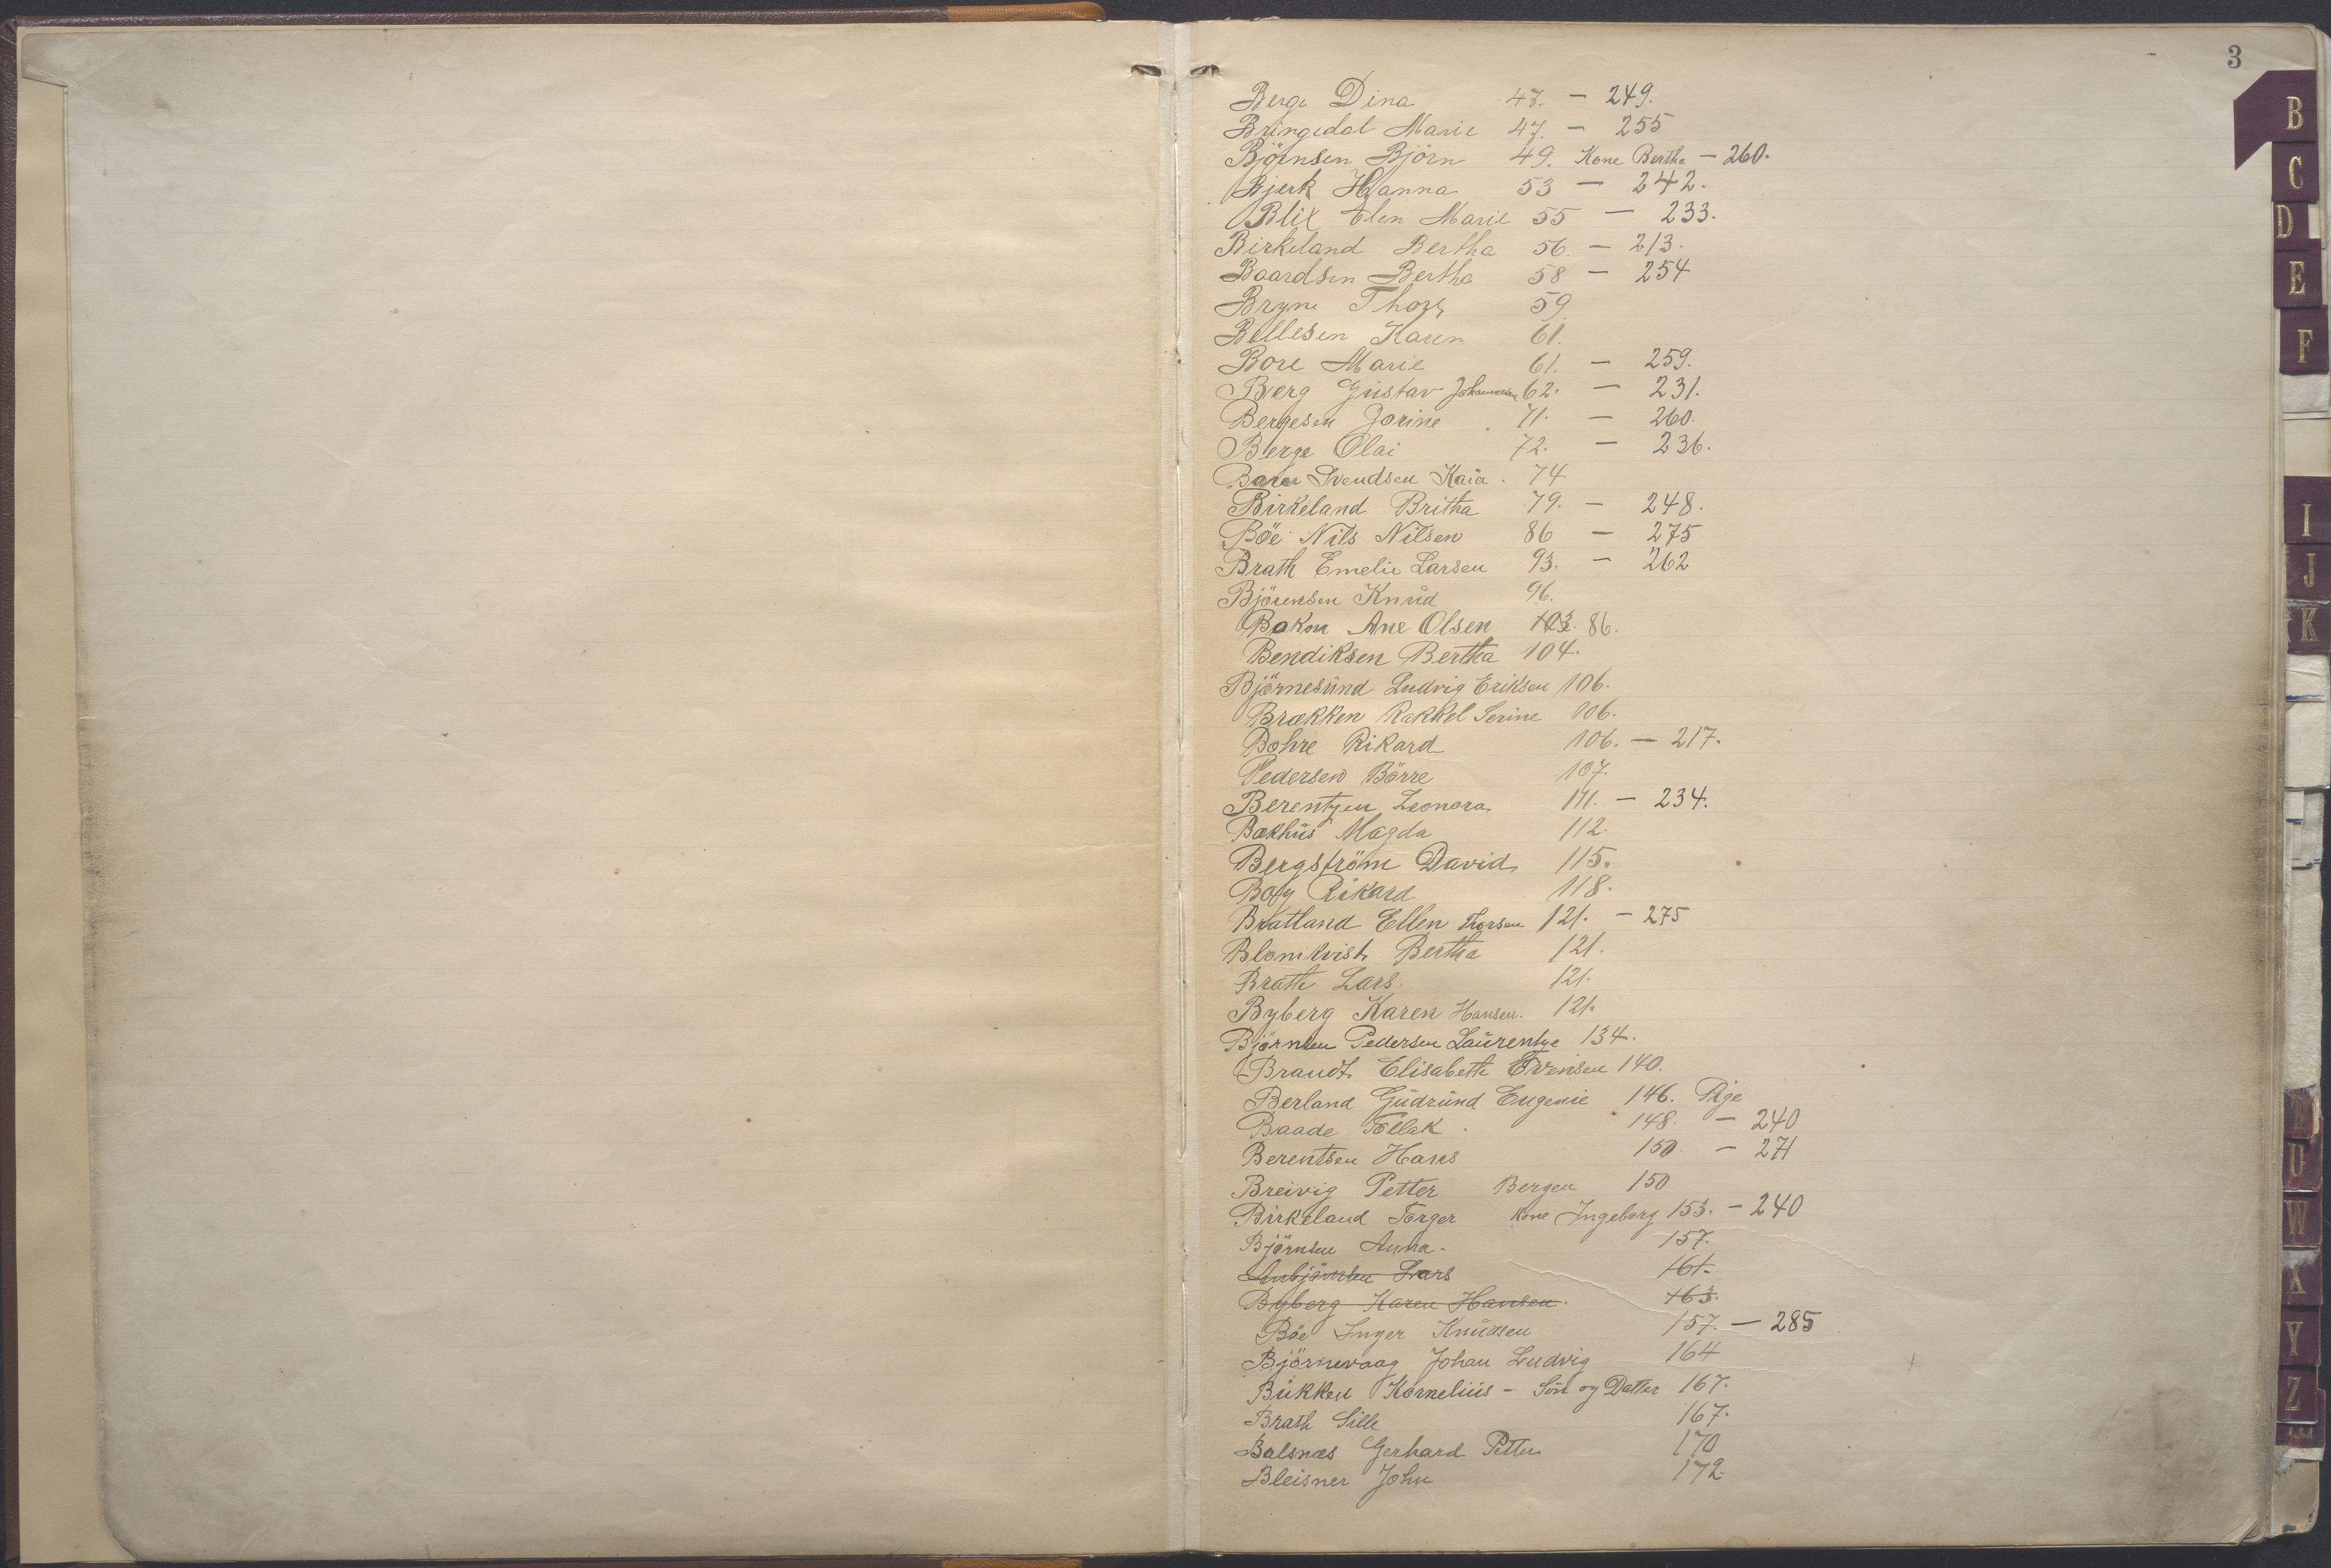 3
Berge Dina 47. - 249.
Bringedal Marie 47. - 255
Björnsen Björn 49. Kone Bertha - 260.
Bjerk Hanna 53 - 242.
Blix Elen Marie 55 - 233.
Birkeland Bertha 56. - 213.
Baardsen Bertha 58 - 254
Bryne 59
Bellesen Karen 61.
Bore Marie 61. - 259.
Berg Gustav Johannesen 62. - 231.
Bergesen Jorine 71. - 260.
Berge Olai 72. - 236.
Svendsen Kaia. 74
Birkeland Britha 79. - 248.
Böe Nils Nilsen 86 - 275
Brath Emelie Larsen 93. - 262
Björensen Knud 96.
Bokn Ane Olsen 103. 86.
Bendiksen Bertha 104.
Björnesund Ludvig Eriksen 106.
Brækken Rakkel Serine 106.
Bohre Rikard 106. - 217.
Pedersen Börre 107.
Berentzen Leonora 111. - 234.
Bækhus Magda 112.
Bergström David 115.
Rikard 118.
Bratland Ellen Thorsen 121. - 275
Blomkvist Bertha 121.
Brath Lars. 121.
Byberg Karen Hansen. 121.
Björnsen Pedersen Laurentze 134.
Brandt Elisabeth 140.
Berland Gudrund Eugenie 146. Pige
Baade Tollak 148. - 240
Berentsen Hans 150 - 271
Breivig Petter Bergen 150
Birkeland Torger Kone Ingeborg 153. - 240
Björnsen Anna. 157.
Anbjörnsen Lars 161.
Byberg Karen Hansen. 163.
Böe Inger Knudsen 157. - 285
Björnevaag Johan Ludvig 164
Bukken Kornelius - Sön og Datter 167.
Brath Sille 167.
Balsnæs Gerhard Petter 170
Bleisner John 172.
B
C
D
E
F
I
J
K
W
X
Y
Z